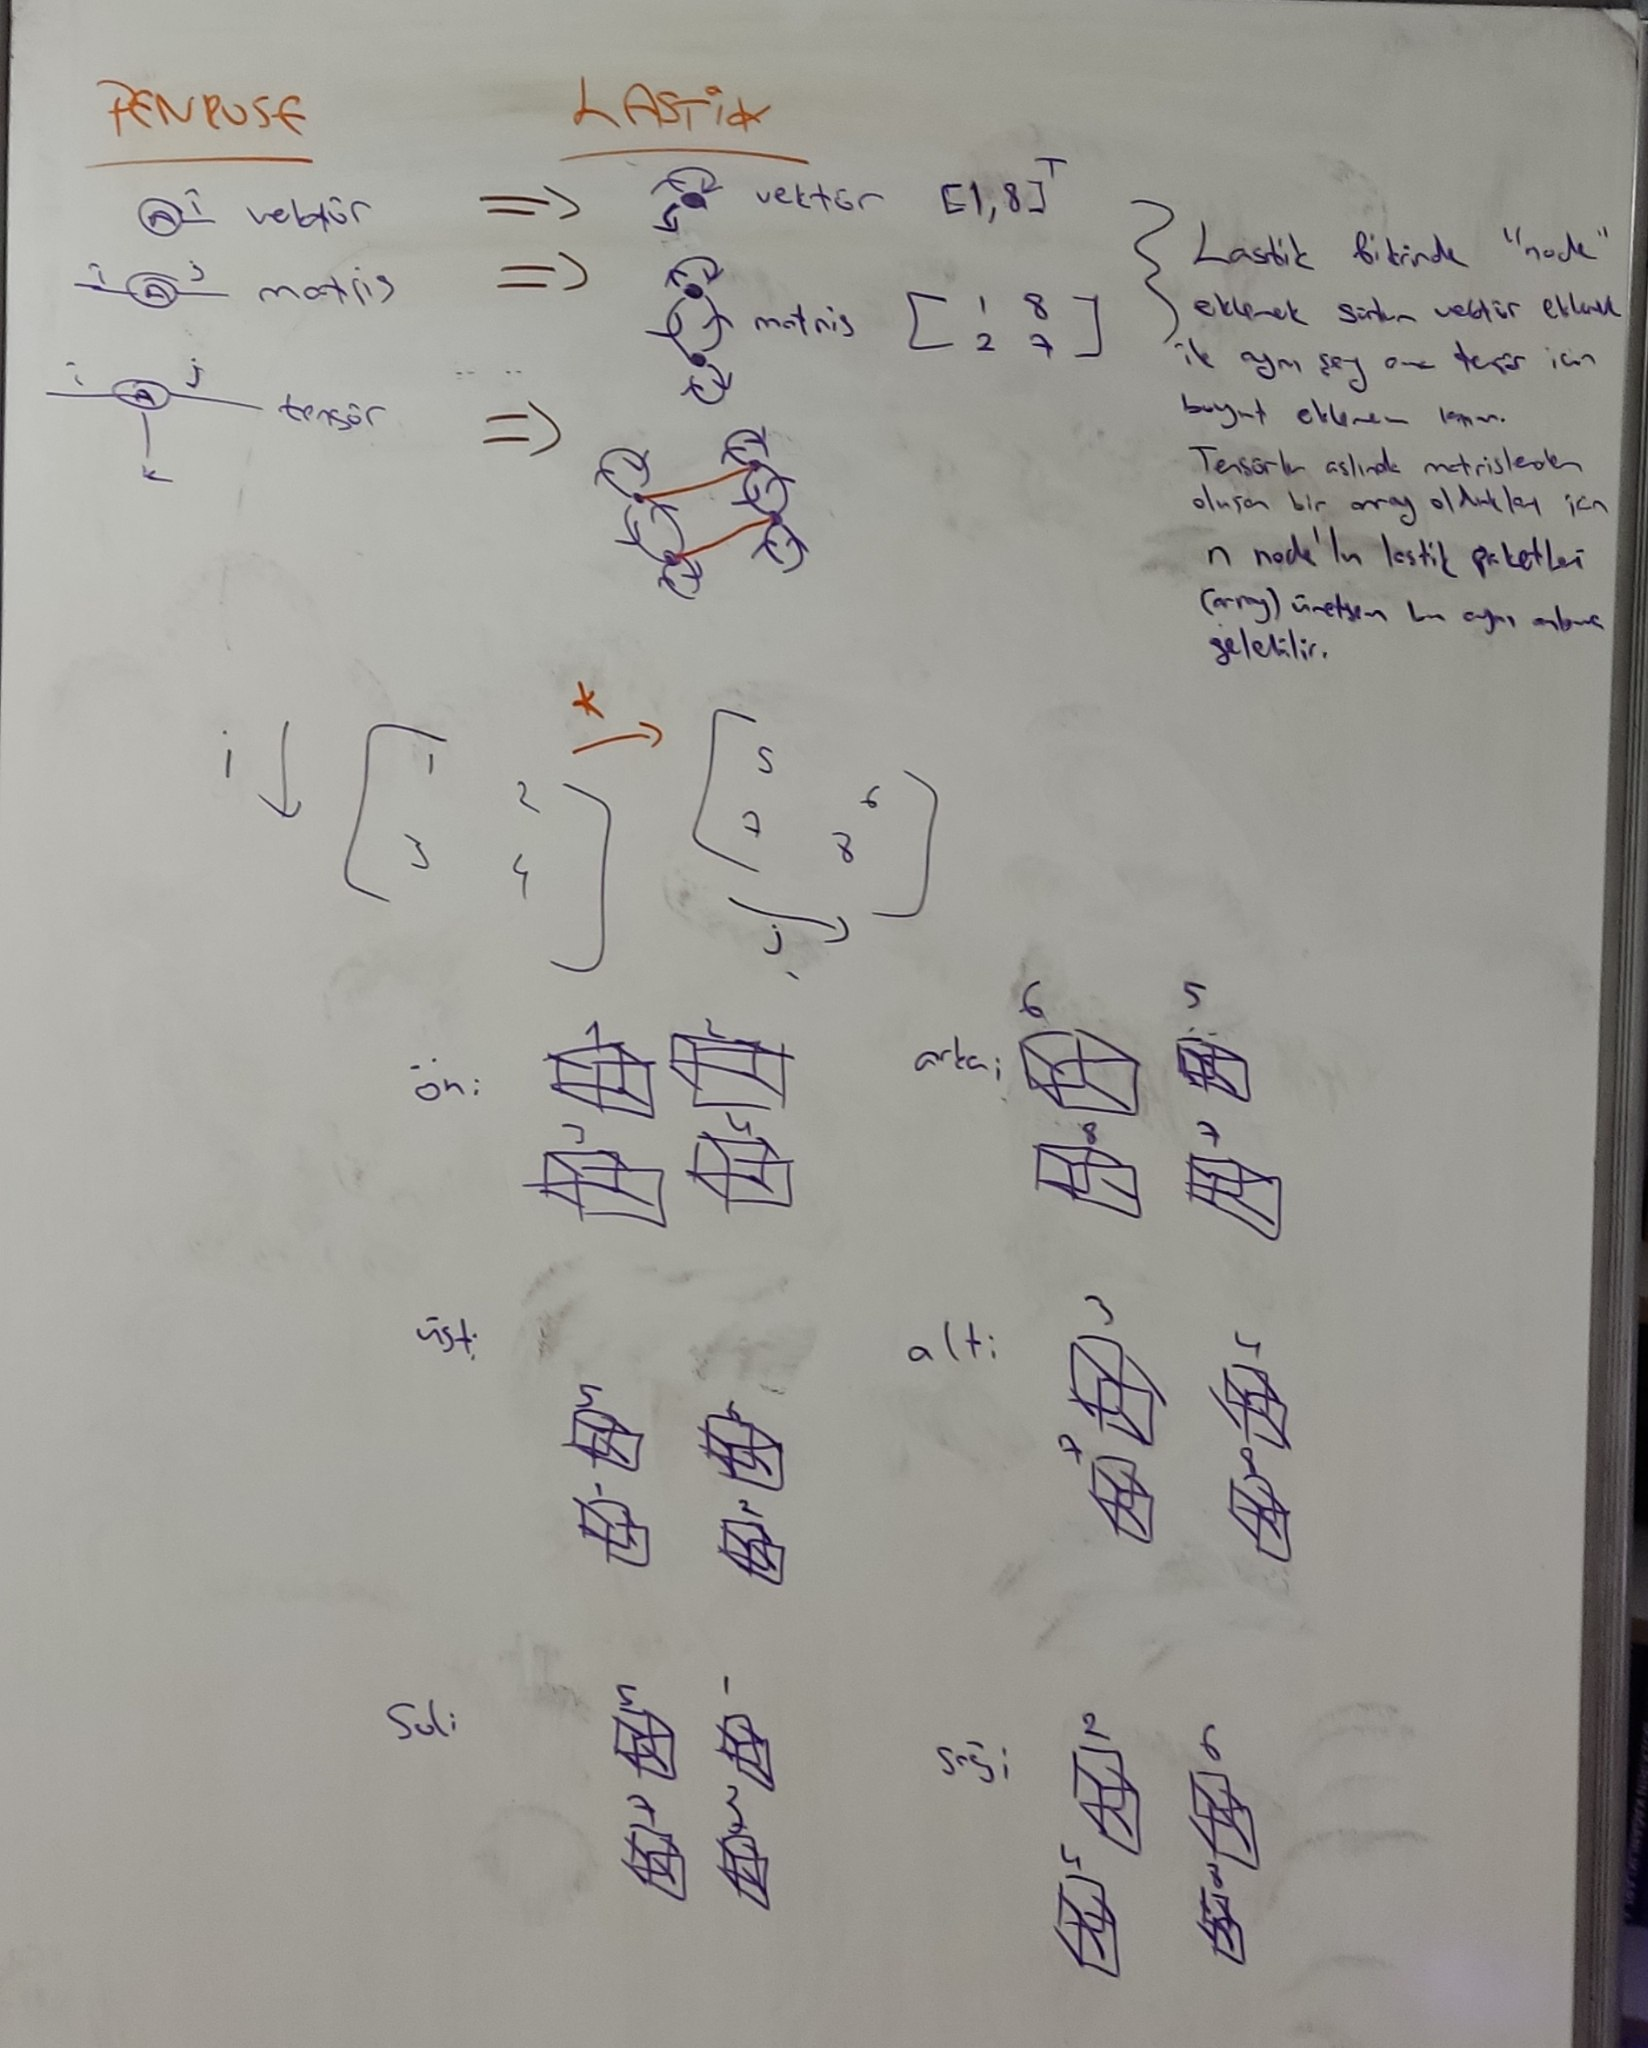 PENROSE LASTİK
A i vektör => vektör [1,8]^T
i A j matris => matris [ 1 8
2 7 ]
i A j k tensör =>
Lastik fikrinde "node"
eklemek sürekli vektör eklemek
ile aynı şey ama tensör için
boyut eklemem lazım.
Tensörler aslında matrislerden
oluşan bir array oldukları için
n node'lu lastik paketleri
(array) üretsem bu aynı anlama
gelebilir.
k
i [ 1 2
3 4 ]
[ 5 6
7 8 ]
j
ön: 1 2
3 4
arka: 6 5
8 7
üst: 5 6
1 2
alt: 3 4
7 8
Sol: 5 1
7 3
sağ: 2 6
4 8